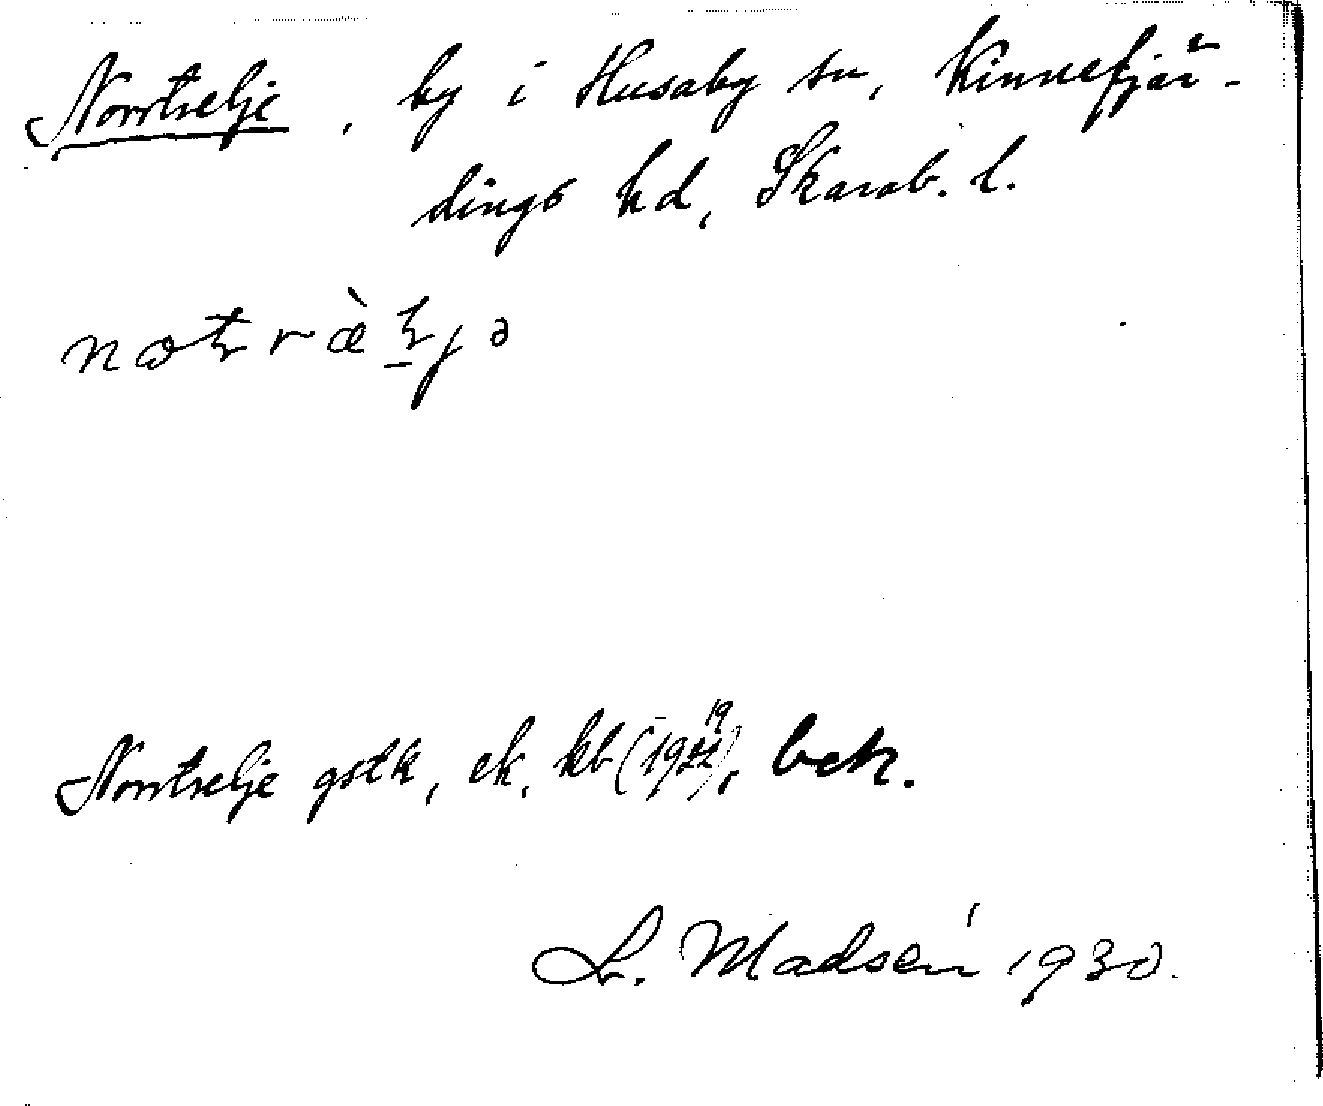 Norrtselje, by i Husaby sn, Kinnefjär-
dings hd, Skarab. l.
Norrtselje gstk, ek. kb (19), bek.
L. Madsén 1930.